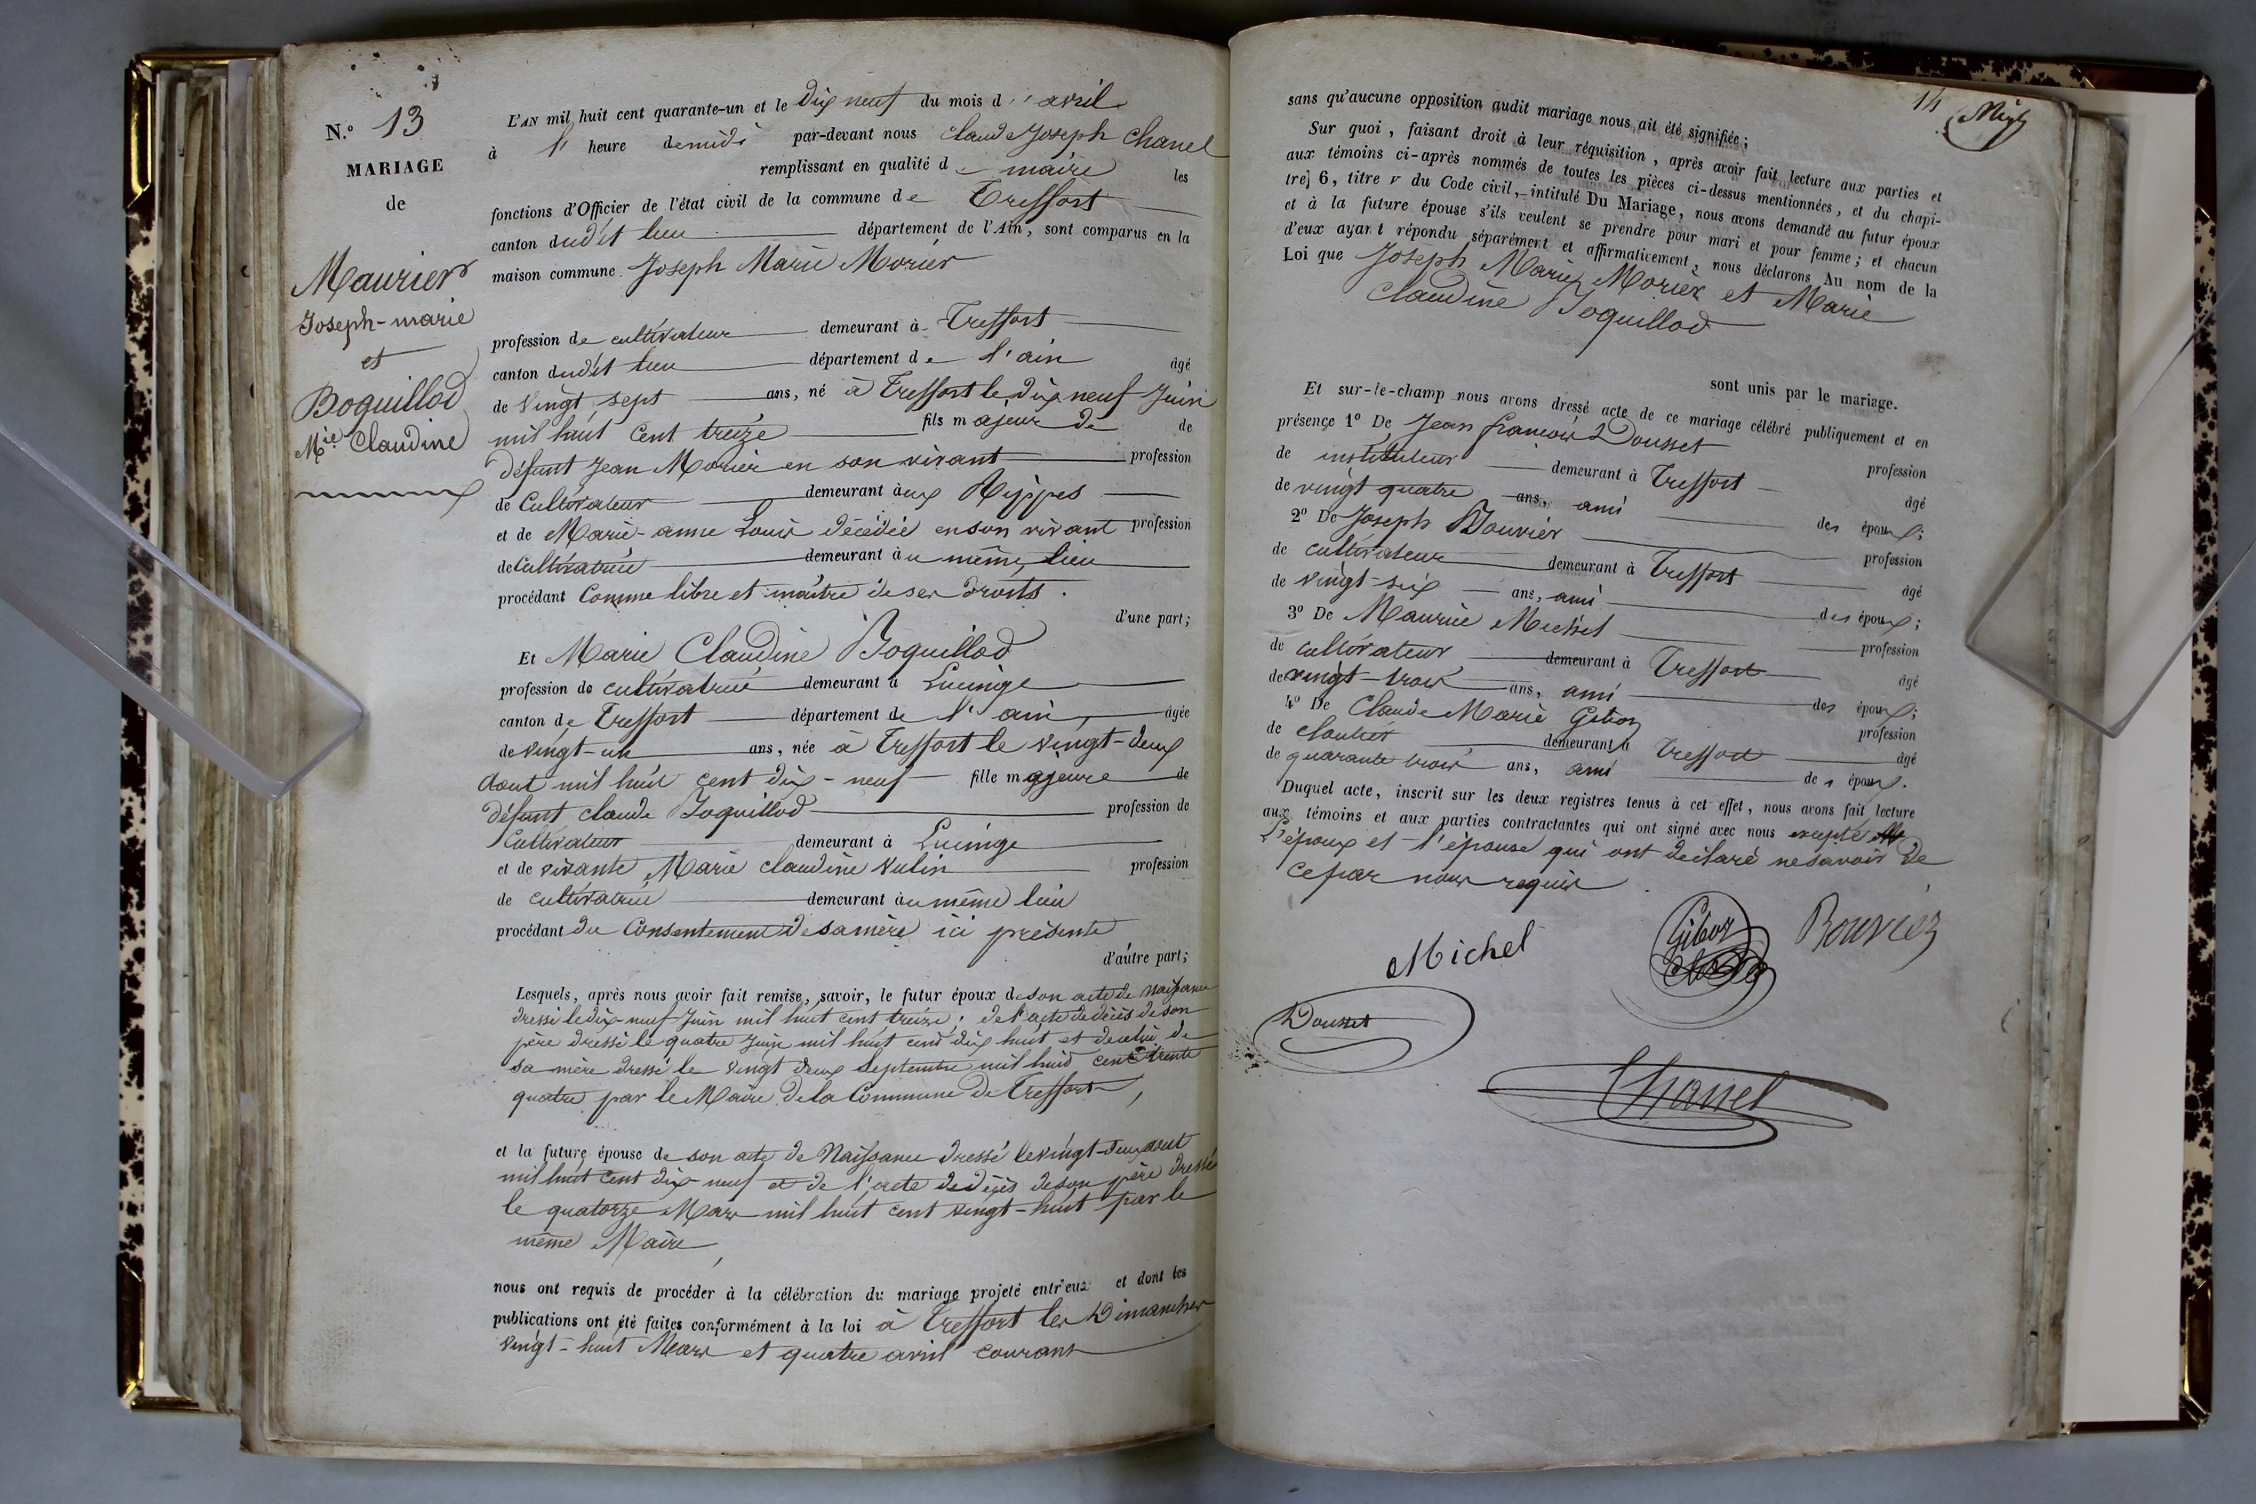 N.o 13
MARIAGE
de
Maurier
Joseph-marie
et
Boquillod
Mie Claudine
L'AN mil huit cent quarante-un et le dix neuf du mois d'avril
à l' heure de midi par-devant nous Claude Joseph Chanel
remplissant en qualité de maire les
fonctions d'Officier de l'état civil de la commune de Treffort
canton dudit lieu département de l'Ain, sont comparus en la
maison commune Joseph Marie Morier
profession de cultivateur demeurant à Treffort
canton dudit lieu département de l'ain âgé
de vingt sept ans, né à Treffort le dix neuf Juin
mil huit Cent treize fils majeur de de
défunt Jean Morier en son vivant profession
de Cultivateur demeurant aux Rippes
et de Marie-anne Louis décédée en son vivant profession
de Cultivatrice demeurant au même lieu
procédant Comme libre et maître de ses droits.
d'une part;
Et Marie Claudine Boquillod
profession de cultivatrice demeurant à Lucinge
canton de Treffort département de l'ain, âgée
de vingt-un ans, née à Treffort le vingt-deux
aout mil huit cent dix-neuf fille majeure de
défunt claude Boquillod profession de
Cultivateur demeurant à Lucinge
et de vivante Marie claudine Vulin profession
de cultivatrice demeurant au même lieu
procédant du Consentement de sa mère ici présente
d'autre part;
Lesquels, après nous avoir fait remise, savoir, le futur époux de son acte de Naissance
dressé le dix-neuf Juin mil huit cent treize; de l'acte de décès de son
père dressé le quatre Juin mil huit cent dix huit et de celui de
sa mère dressé le vingt deux Septembre mil huit cent trente
quatre par le Maire de la Commune de Treffort,
et la future épouse de son acte de Naissance dressé le vingt-deux aout
mil huit cent dix neuf et de l'acte de décès de son père dressé
le quatorze Mars mil huit cent vingt-huit par le
même Maire,
nous ont requis de procéder à la célébration du mariage projeté entr'eux et dont les
publications ont été faites conformément à la loi à Treffort les Dimanches
vingt-huit Mars et quatre avril courant
14
sans qu'aucune opposition audit mariage nous ait été signifiée;
Sur quoi, faisant droit à leur réquisition, après avoir fait lecture aux parties et
aux témoins ci-après nommés de toutes les pièces ci-dessus mentionnées, et du chapi-
tre 6, titre v du Code civil, intitulé Du Mariage, nous avons demandé au futur époux
et à la future épouse s'ils veulent se prendre pour mari et pour femme; et chacun
d'eux ayant répondu séparément et affirmativement, nous déclarons Au nom de la
Loi que Joseph Marie Morier et Marie
Claudine Boquillod
sont unis par le mariage.
Et sur-le-champ nous avons dressé acte de ce mariage célébré publiquement et en
présence 1o De Jean francois Dousset profession
de instituteur demeurant à Treffort âgé
de vingt quatre ans, ami des époux;
2o De Joseph Bouvier profession
de cultivateur demeurant à Treffort âgé
de vingt-six ans, ami des époux;
3o De Maurice Michel profession
de cultivateur demeurant à Treffort âgé
de vingt-trois ans, ami des époux;
4o De Claude Marie Giboz profession
de cloutier demeurant à Treffort âgé
de quarante trois ans, ami des époux.
Duquel acte, inscrit sur les deux registres tenus à cet effet, nous avons fait lecture
aux témoins et aux parties contractantes qui ont signé avec nous excepté
l'époux et l'épouse qui ont déclaré ne savoir de
ce par nous requis.
Michel
Giboz
Bouvier
Dousset
Chanel